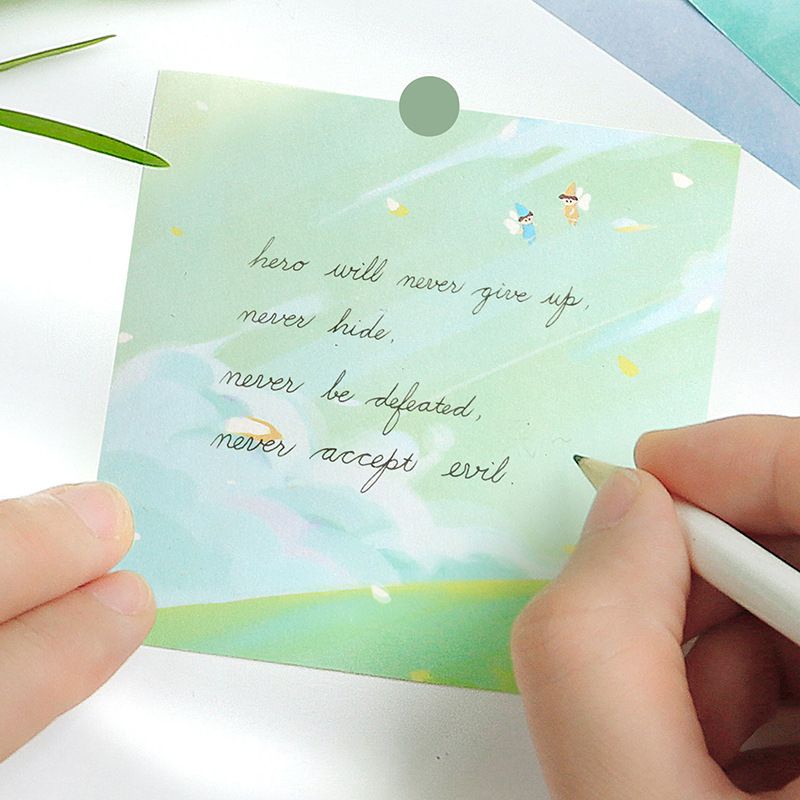 hero will never give up,
never hide,
never be defeated,
never accept evil.